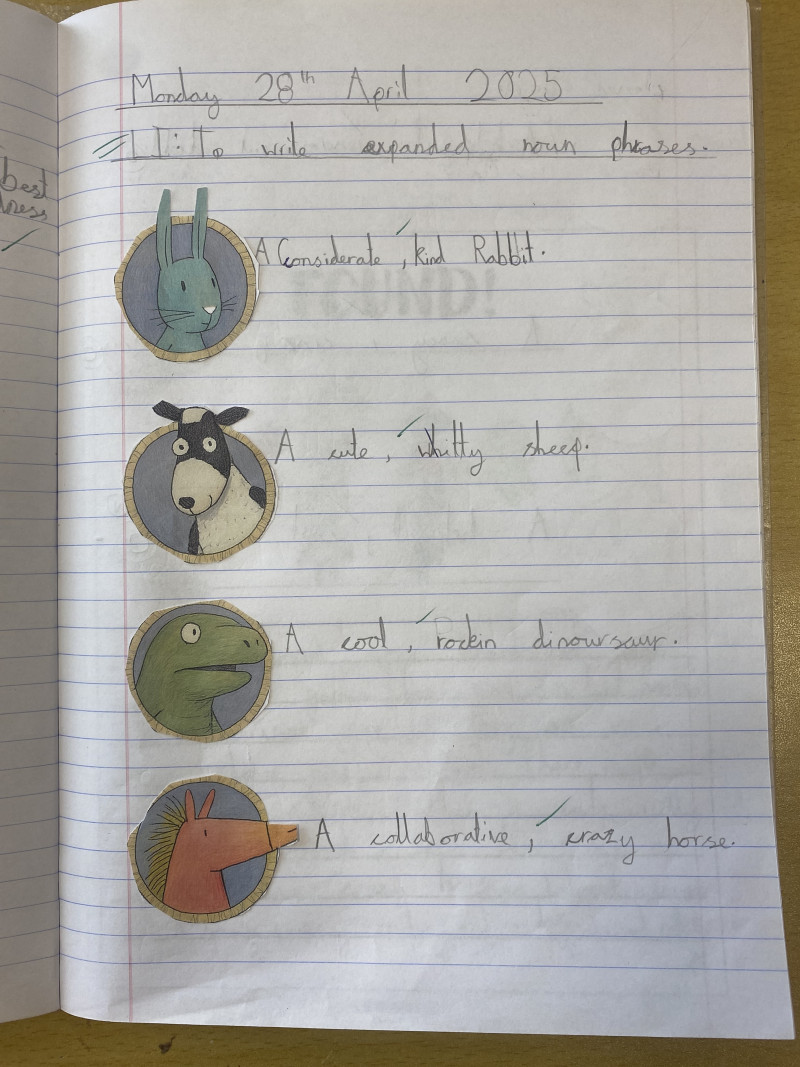 Monday 28th April 2025
LI: To write expanded noun phrases.
best
A Considerate, kind Rabbit.
A cute, whitty sheep.
A cool, rockin dinoursaur.
A collaborative, crazy horse.